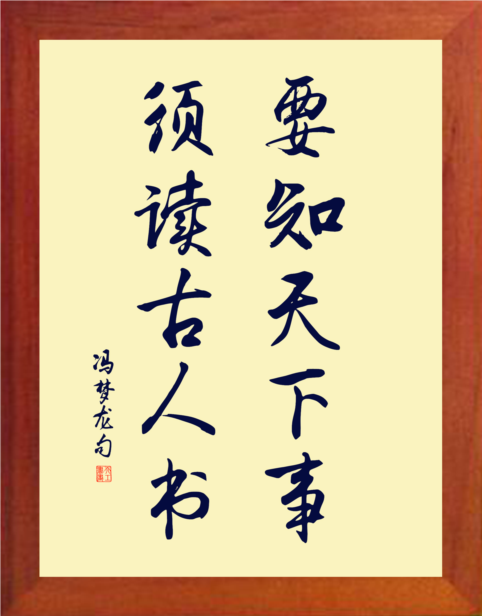 要知天下事
须读古人书
冯梦龙句